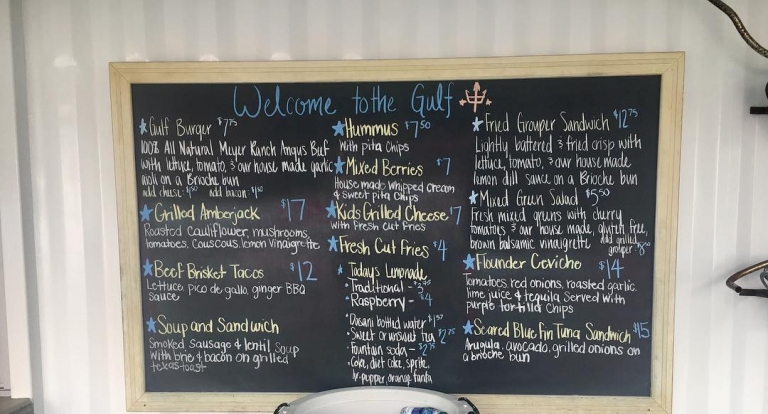 Welcome to the Gulf
Gulf Burger $7.75
100% All Natural Meyer Ranch Angus Beef
with lettuce, tomato, & our house made garlic
aioli on a Brioche bun
add cheese $1.50 add bacon $1.50
Grilled Amberjack $17
Roasted cauliflower, mushrooms,
tomatoes, couscous, lemon vinaigrette
Beef Brisket Tacos $12
Lettuce, pico de gallo, ginger BBQ
sauce
Soup and Sandwich
Smoked sausage & lentil soup
with brie & bacon on grilled
texas toast
Hummus $7.50
with pita chips
Mixed Berries $7
House made whipped cream
& sweet pita chips
Kids Grilled Cheese $7
with fresh cut fries
Fresh Cut Fries $4
Today's Lemonade
Traditional -
Raspberry - $4
Dasani bottled water $1.50
Sweet or unsweet tea $2.75
Fountain soda - $2.75
Coke, diet coke, sprite,
dr. pepper, orange fanta
Fried Grouper Sandwich $12.75
Lightly battered & fried crisp with
lettuce, tomato, & our house made
lemon dill sauce on a Brioche bun
Mixed Green Salad $5.50
Fresh mixed greens with cherry
tomatoes & our house made, gluten free,
brown balsamic vinaigrette add grilled
grouper
Flounder Ceviche $14
Tomatoes, red onions, roasted garlic,
lime juice & tequila served with
purple tortilla chips
Seared Blue Fin Tuna Sandwich $15
Arugula, avocado, grilled onions on
a brioche bun